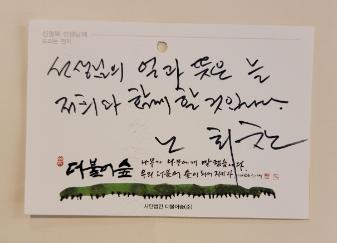 신영복 선생님께
드리는 엽서
선생님의 얼과 뜻은 늘
저희와 함께 할 것입니다.
노 회찬
더불어숲 나무가 나무에게 말했습니다.
우리 더불어 숲이 되어 지키자
사단법인 더불어숲(주)